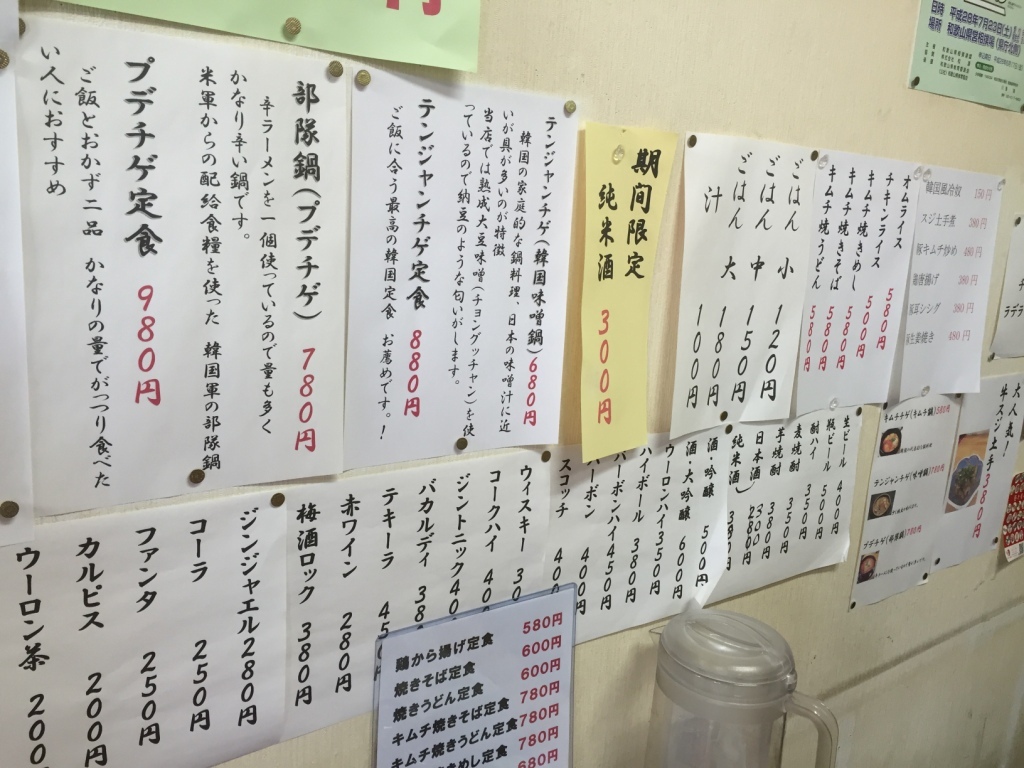 部隊鍋(プデチゲ) 780円
辛ラーメンを一個使っているので量も多く
かなり辛い鍋です。
米軍からの配給食糧を使った 韓国軍の部隊鍋
プデチゲ定食 980円
ご飯とおかず二品 かなりの量でがっつり食べた
い人におすすめ
テンジャンチゲ(韓国味噌鍋)680円
韓国の家庭的な鍋料理 日本の味噌汁に近
いが具が多いのが特徴
当店では熟成大豆味噌(チョングッチャン)を使
っているので納豆のような匂いがします。
テンジャンチゲ定食 880円
ご飯に合う最高の韓国定食 お薦めです!
期間限定
純米酒 300円
ごはん 小 120円
ごはん 中 150円
ごはん 大 180円
汁 100円
オムライス 580円
チキンライス 500円
キムチ焼きめし 580円
キムチ焼きそば 580円
キムチ焼うどん 580円
韓国風冷奴 150円
スジ土手煮 380円
豚キムチ炒め 480円
鶏唐揚げ 380円
380円
生姜焼き 480円
日時 平成28年7月23日(土)
場所 和歌山県営相撲場
大人気!
牛スジ土手380円
キムチチゲ(キムチ鍋)580円
テンジャンチゲ(味噌鍋)
プデチゲ(部隊鍋)780円
生ビール 400円
瓶ビール 500円
酎ハイ 350円
麦焼酎 350円
芋焼酎 380円
日本酒 300円
(純米酒)
酒・吟醸 500円
酒・大吟醸 600円
ウーロンハイ350円
ハイボール 380円
バーボンハイ450円
バーボン 400円
スコッチ
ウィスキー
コークハイ
ジントニック
バカルディ
テキーラ
赤ワイン 280円
梅酒ロック 380円
ジンジャエル280円
コーラ 250円
ファンタ 250円
カルピス 200円
ウーロン茶 200
鶏から揚げ定食 580円
焼きそば定食 600円
焼きうどん定食 600円
キムチ焼きそば定食 780円
キムチ焼うどん定食 780円
きめし定食 780円
680円